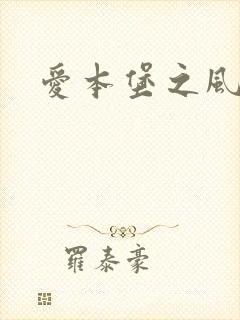 愛本堡之風
羅泰豪